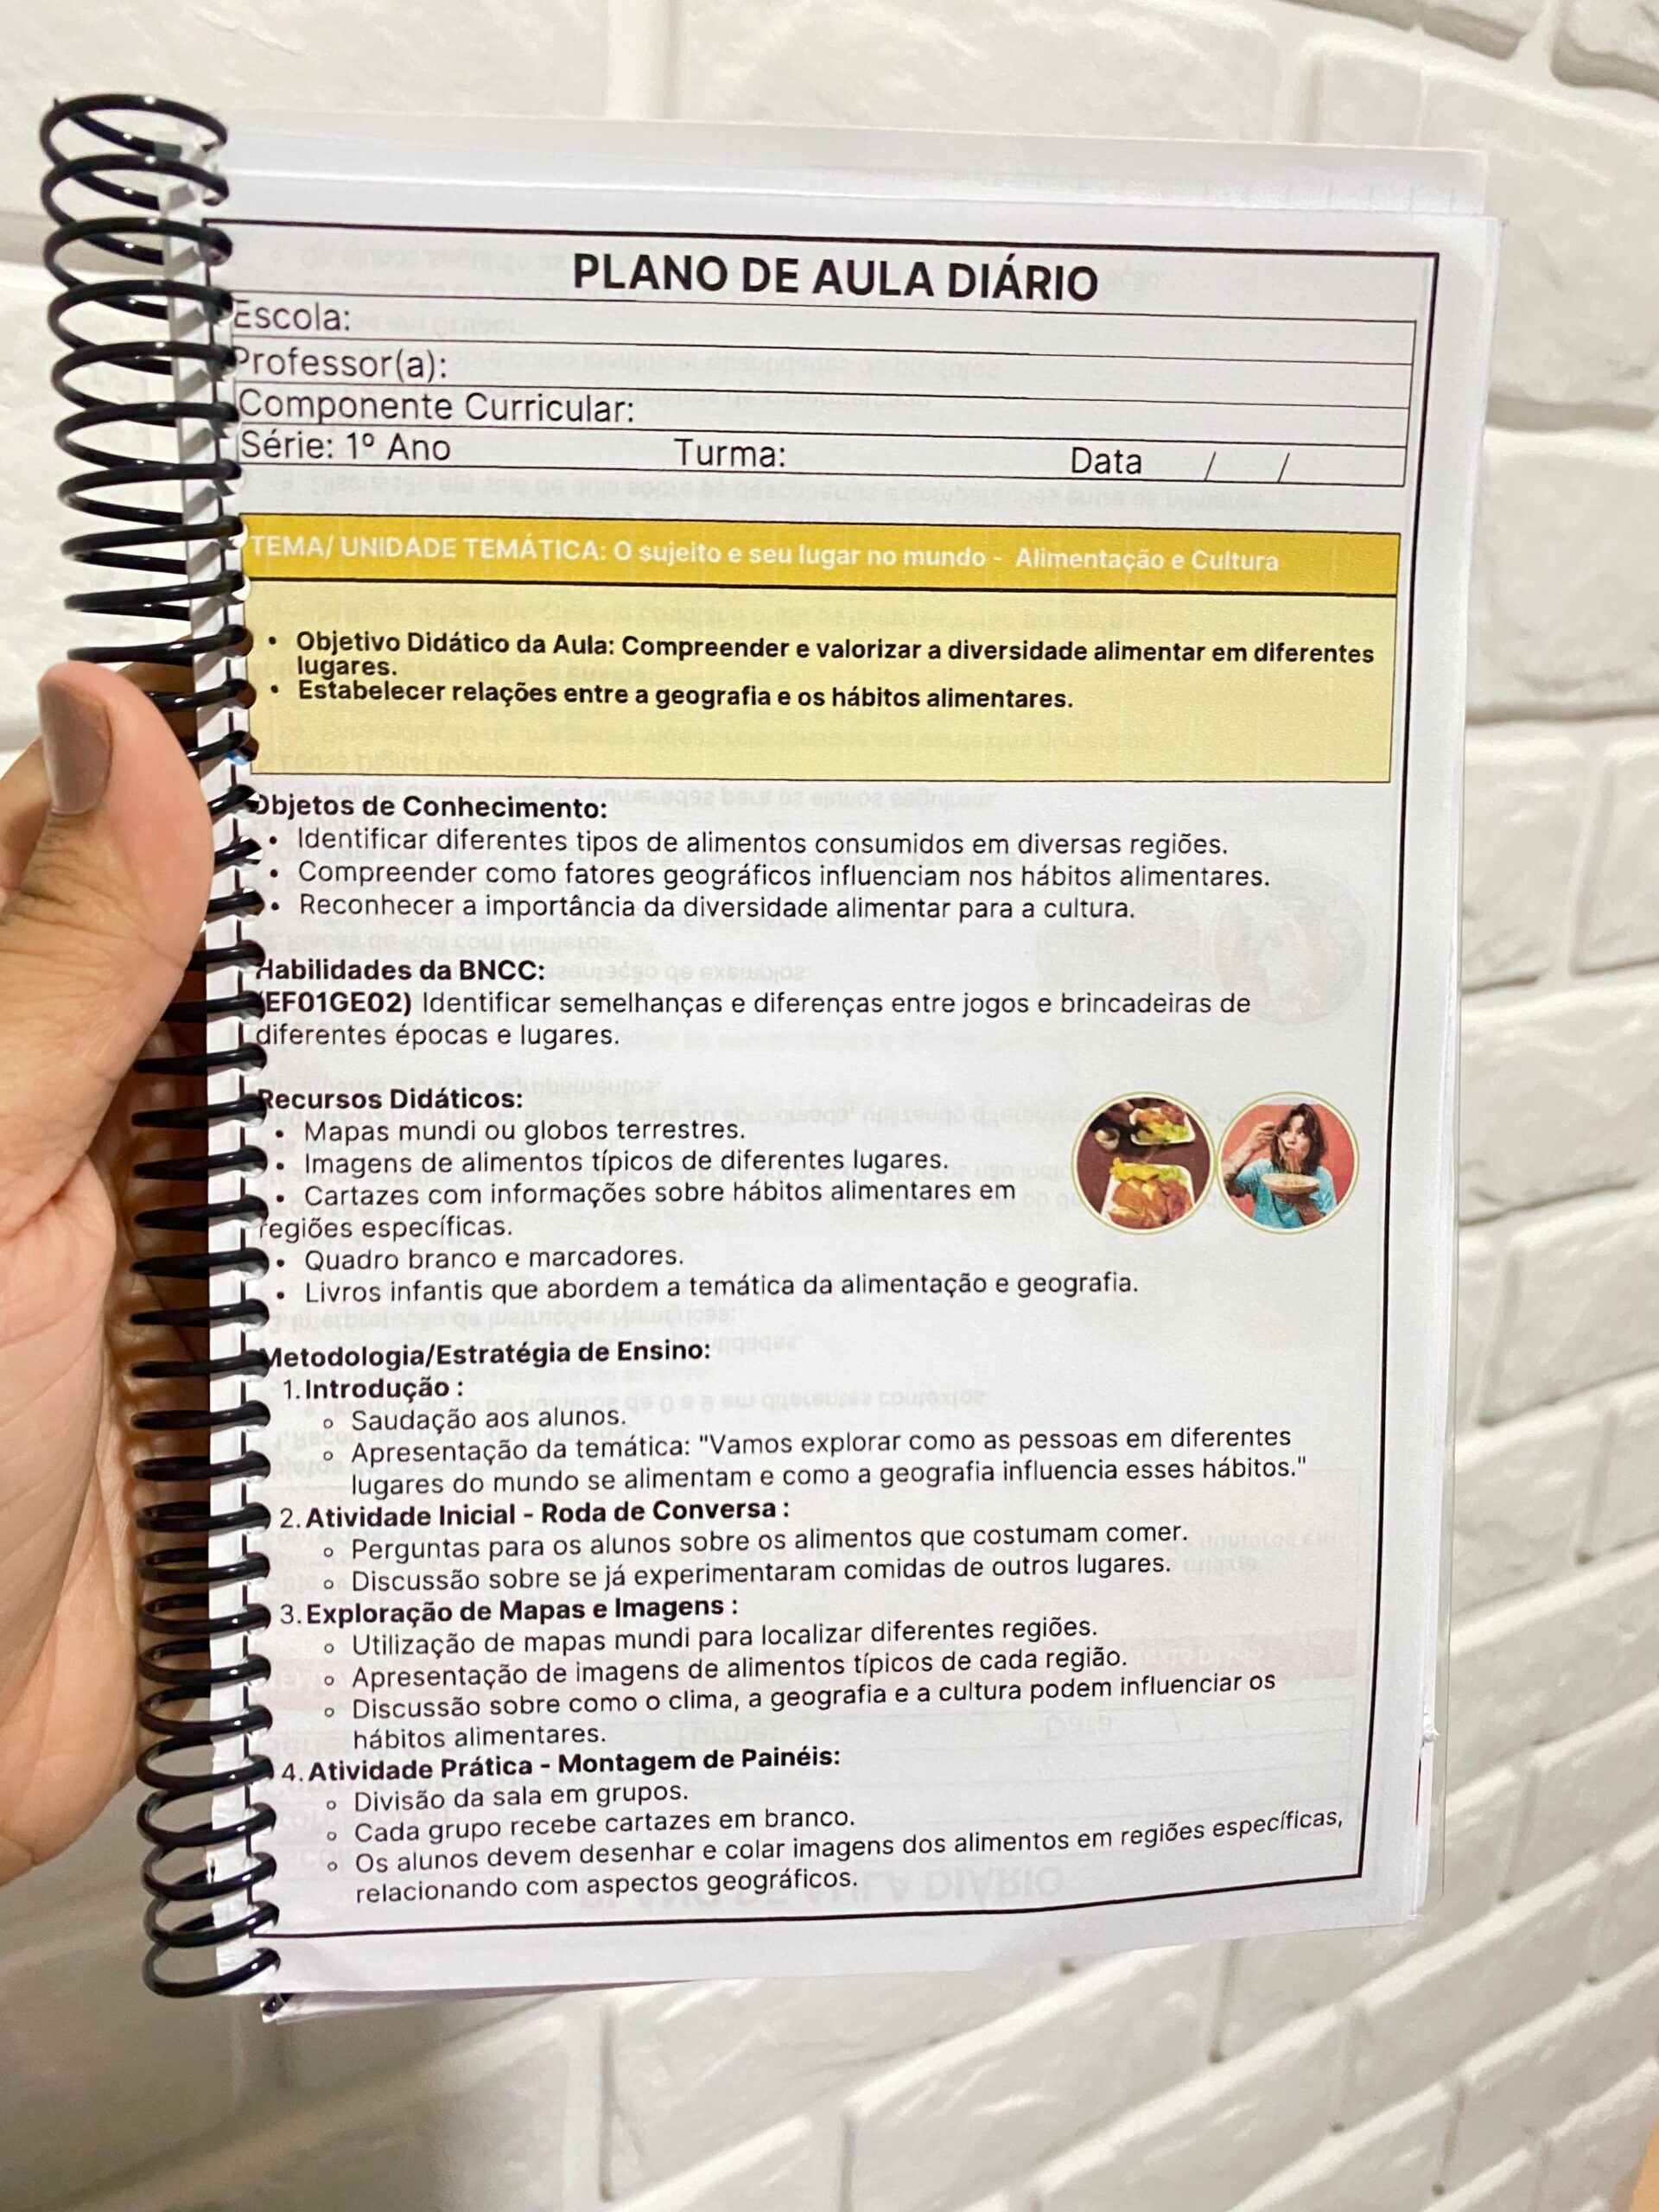 PLANO DE AULA DIÁRIO
Escola:
Professor(a):
Componente Curricular:
Série: 1º Ano Turma: Data / /
TEMA/ UNIDADE TEMÁTICA: O sujeito e seu lugar no mundo - Alimentação e Cultura
• Objetivo Didático da Aula: Compreender e valorizar a diversidade alimentar em diferentes
lugares.
• Estabelecer relações entre a geografia e os hábitos alimentares.
Objetos de Conhecimento:
• Identificar diferentes tipos de alimentos consumidos em diversas regiões.
• Compreender como fatores geográficos influenciam nos hábitos alimentares.
• Reconhecer a importância da diversidade alimentar para a cultura.
Habilidades da BNCC:
(EF01GE02) Identificar semelhanças e diferenças entre jogos e brincadeiras de
diferentes épocas e lugares.
Recursos Didáticos:
• Mapas mundi ou globos terrestres.
• Imagens de alimentos típicos de diferentes lugares.
• Cartazes com informações sobre hábitos alimentares em
regiões específicas.
• Quadro branco e marcadores.
• Livros infantis que abordem a temática da alimentação e geografia.
Metodologia/Estratégia de Ensino:
1. Introdução :
o Saudação aos alunos.
o Apresentação da temática: "Vamos explorar como as pessoas em diferentes
lugares do mundo se alimentam e como a geografia influencia esses hábitos."
2. Atividade Inicial - Roda de Conversa :
o Perguntas para os alunos sobre os alimentos que costumam comer.
o Discussão sobre se já experimentaram comidas de outros lugares.
3. Exploração de Mapas e Imagens :
o Utilização de mapas mundi para localizar diferentes regiões.
o Apresentação de imagens de alimentos típicos de cada região.
o Discussão sobre como o clima, a geografia e a cultura podem influenciar os
hábitos alimentares.
4. Atividade Prática - Montagem de Painéis:
o Divisão da sala em grupos.
o Cada grupo recebe cartazes em branco.
o Os alunos devem desenhar e colar imagens dos alimentos em regiões específicas,
relacionando com aspectos geográficos.